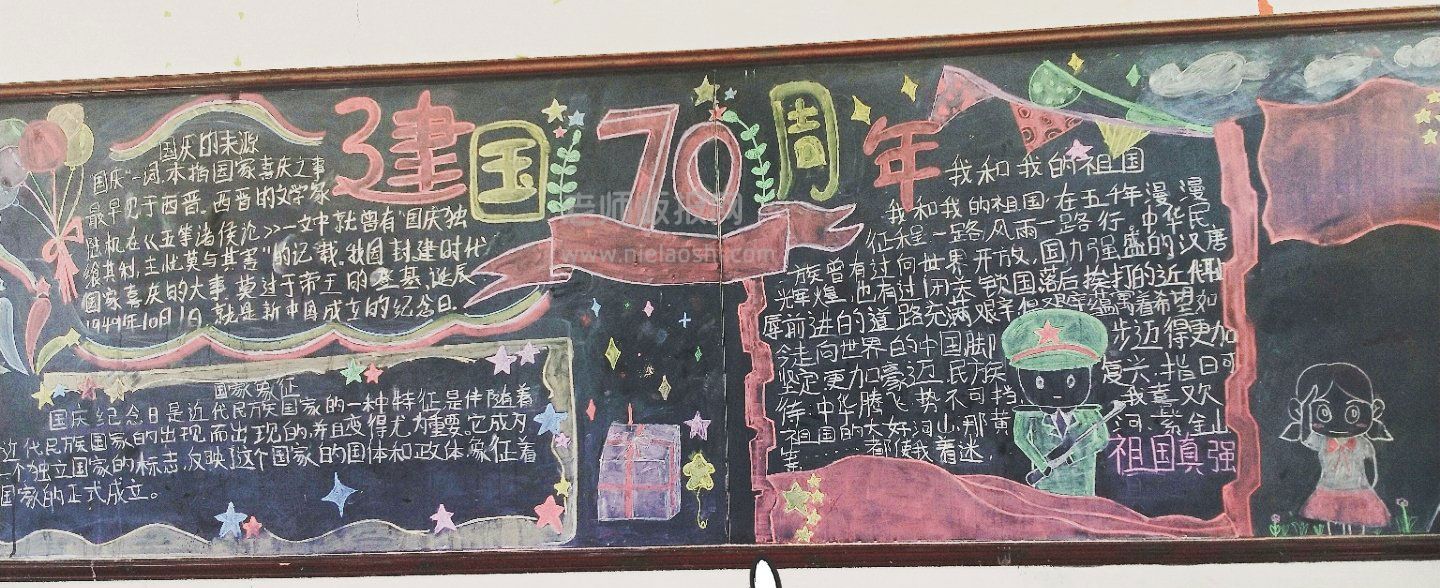 建国70周年
国庆的来源
国庆"一词,本指国家喜庆之事
最早见于西晋.西晋的文学家
陆机在《五等诸侯论>>一文中就曾有"国庆独
飨其利,主忧莫与其害"的记载.我国封建时代
国家喜庆的大事,莫过于帝王的登基、诞辰
1949年10月1日 就是新中国成立的纪念日.
国家象征
国庆纪念日是近代民族国家的一种特征,是伴随着
近代民族国家的出现,而出现的,并且变得尤为重要.它成为
一个独立国家的标志,反映这个国家的国体和政体.象征着
国家的正式成立。
我和我的祖国
我和我的祖国.在五千年漫漫
征程.一路风雨一路行.中华民
族曾有过向世界开放,国力强盛的汉唐
辉煌.也有过闭关锁国落后挨打的近代
辱前进的道路充满艰辛 着希望如
今走向世界的中国脚 步迈得更加
坚定.更加豪迈.民族 复兴.指日可
待.中华腾飞.势不可挡. 我喜欢
祖国的大好河山.那黄 河.紫金山
都使我着迷.
祖国真强
老师板报网
www.nielaoshi.com